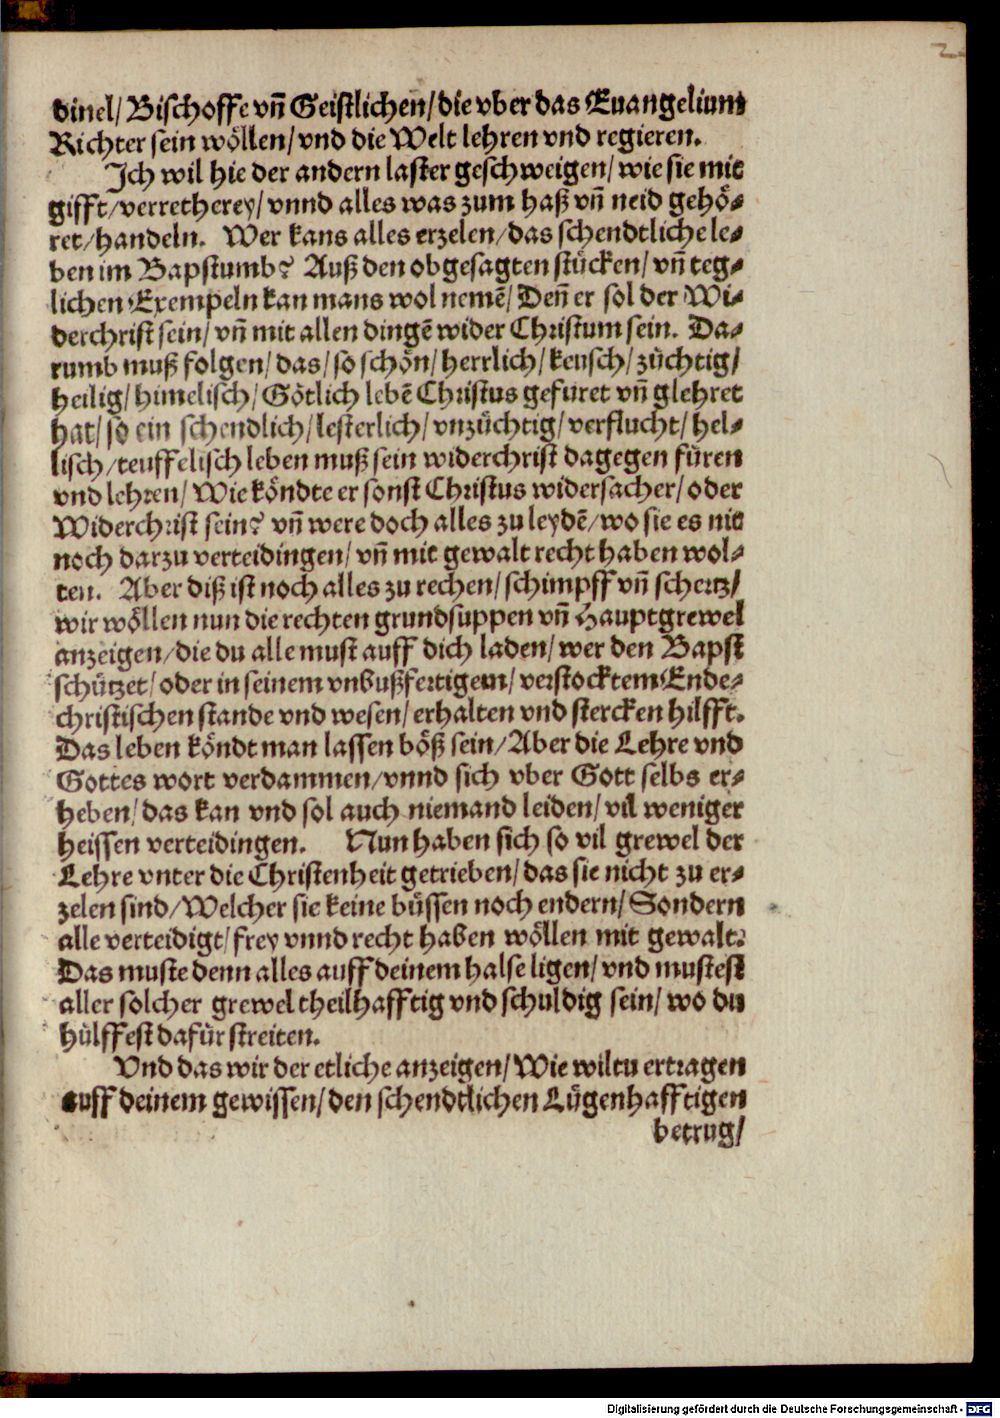 2
dinel/ Bischoffe vñ Geistlichen/ die vber das Euangelium
Richter sein wöllen/ vnd die Welt lehren vnd regieren.
Ich wil hie der andern laster geschweigen/ wie sie mit
gifft/ verretherey/ vnnd alles was zum haß vñ neid gehö-
ret/ handeln. Wer kans alles erzelen/ das schendtliche le-
ben im Bapstumb? Auß den obgesagten stücken/ vñ teg-
lichen Exempeln kan mans wol nemẽ/ Deñ er sol der Wi-
derchrist sein/ vñ mit allen dingẽ wider Christum sein. Da-
rumb muß folgen/ das/ so schön/ herrlich/ keusch/ züchtig/
heilig/ himelisch/ Götlich lebẽ Christus gefüret vñ glehret
hat/ so ein schendlich/ lesterlich/ vnzüchtig/ verflucht/ hel-
lisch/ teuffelisch leben muß sein widerchrist dagegen füren
vnd lehren/ Wie köndte er sonst Christus widersacher/ oder
Widerchrist sein? vñ were doch alles zu leydẽ/ wo sie es nit
noch darzu verteidingen/ vñ mit gewalt recht haben wol-
ten. Aber diß ist noch alles zu rechen/ schimpff vñ schertz/
wir wöllen nun die rechten grundsuppen vñ Hauptgrewel
anzeigen/ die du alle must auff dich laden/ wer den Bapst
schützet/ oder in seinem vnbußfertigem/ verstocktem Ende-
christischen stande vnd wesen/ erhalten vnd stercken hilfft.
Das leben köndt man lassen böß sein/ Aber die Lehre vnd
Gottes wort verdammen/ vnnd sich vber Gott selbs er-
heben/ das kan vnd sol auch niemand leiden/ vil weniger
heissen verteidingen. Nun haben sich so vil grewel der
Lehre vnter die Christenheit getrieben/ das sie nicht zu er-
zelen sind/ Welcher sie keine büssen noch endern/ Sondern
alle verteidigt/ frey vnnd recht haben wöllen mit gewalt.
Das muste denn alles auff deinem halse ligen/ vnd mustest
aller solcher grewel theilhafftig vnd schuldig sein/ wo du
hülffest dafür streiten.
Vnd das wir der etliche anzeigen/ Wie wiltu ertragen
auff deinem gewissen/ den schendtlichen Lügenhafftigen
betrug/
Digitalisierung gefördert durch die Deutsche Forschungsgemeinschaft - DFG